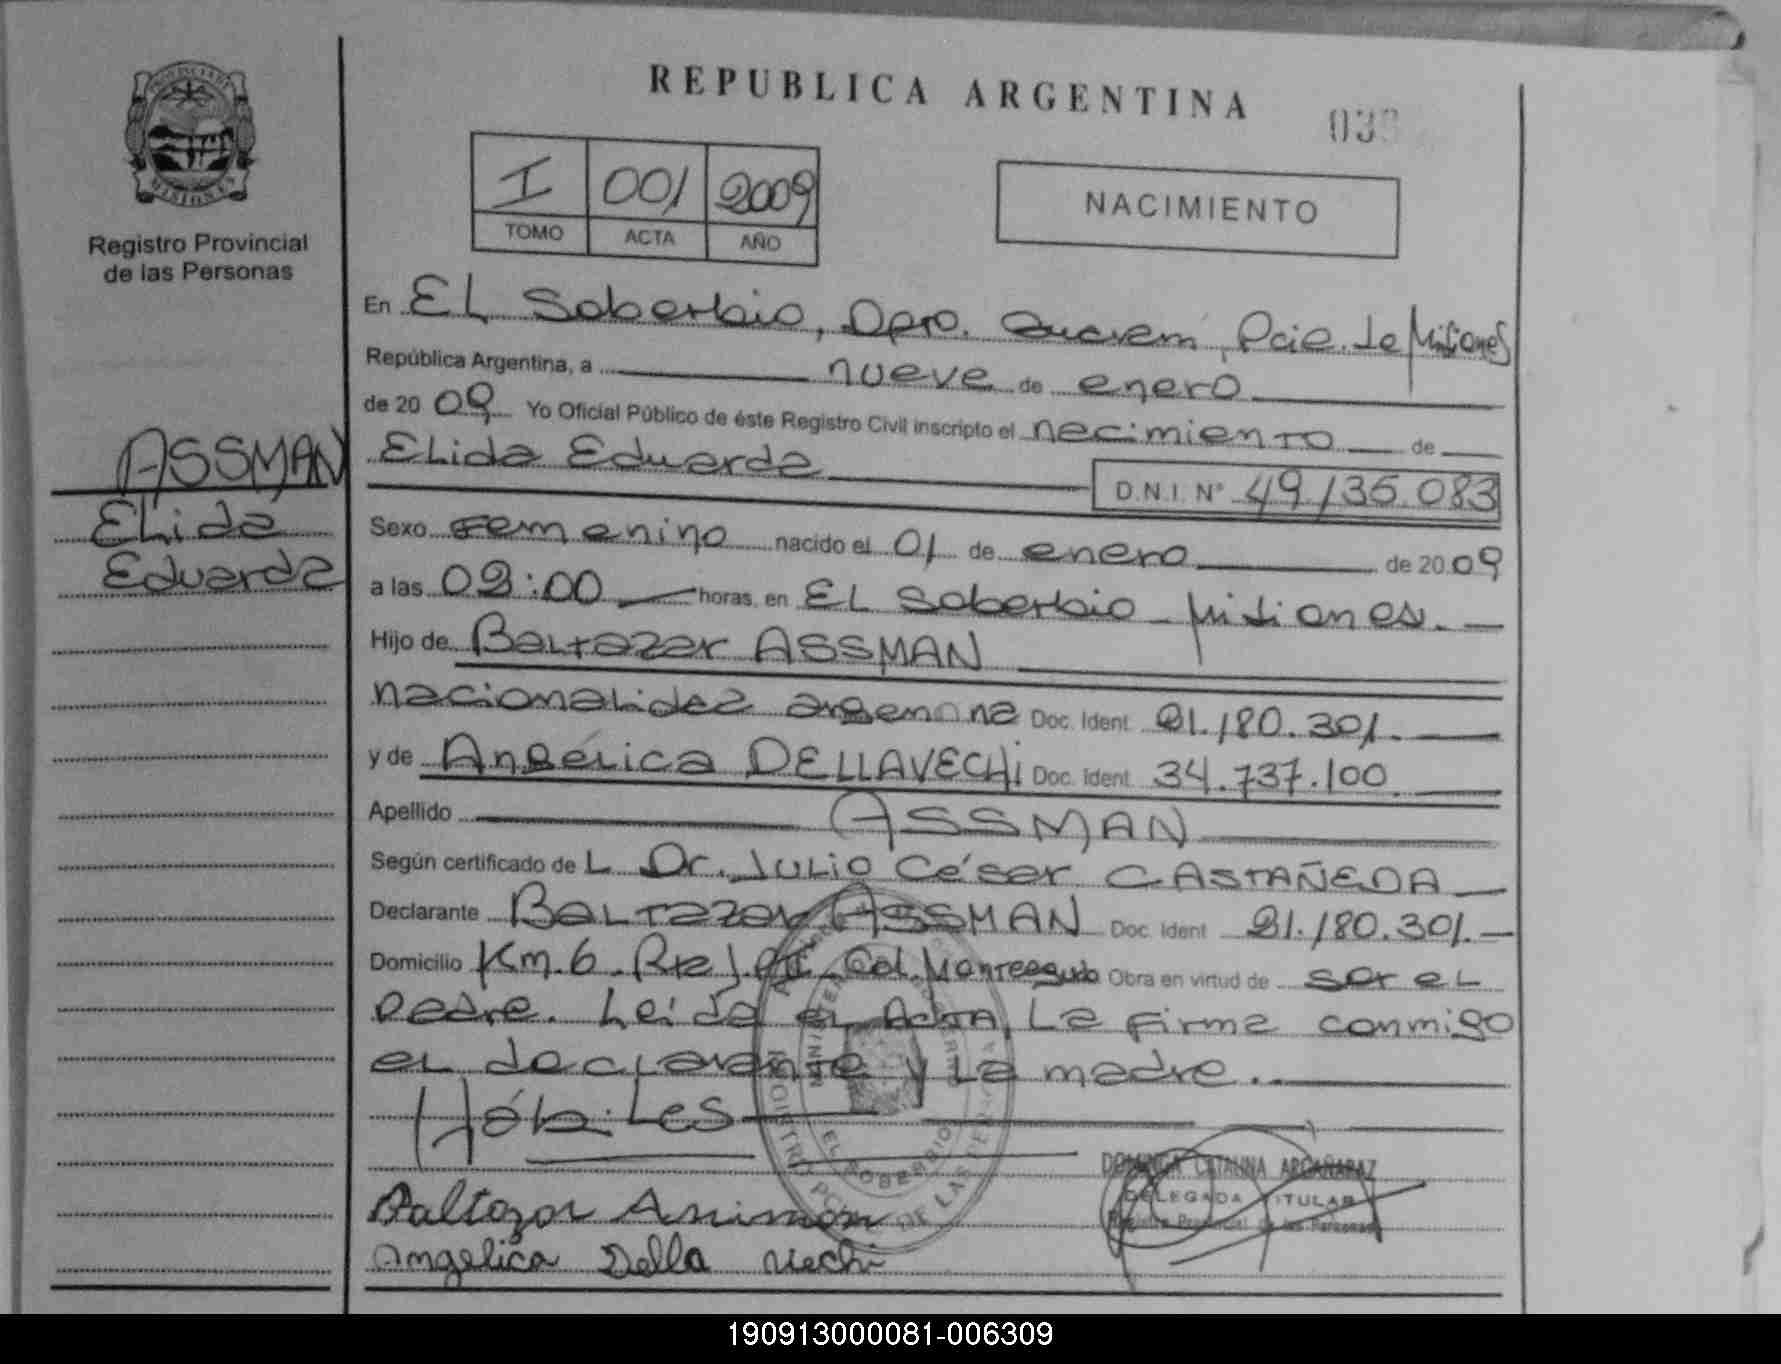 REPUBLICA ARGENTINA
PROVINCIA DE
MISIONES
Registro Provincial
de las Personas
I 001 2009
TOMO ACTA AÑO
NACIMIENTO
En EL Soberbio, Dpto. Guaraní, Pcia. de Misiones
República Argentina, a nueve de enero
de 2009 Yo Oficial Público de éste Registro Civil inscripto el nacimiento de
ASSMAN
Elida Eduarda
D.N.I. Nº 49.135.083
Elida
Eduarda
Sexo Femenino nacido el 01 de enero de 2009
a las 02:00 horas, en EL Soberbio - Misiones.
Hijo de Baltazar ASSMAN
nacionalidad argentina Doc. Ident. 21.180.301.
y de Angélica DELLAVECHI Doc. Ident. 34.737.100
Apellido ASSMAN
Según certificado de L Dr. Julio César CASTAÑEDA
Declarante Baltazar ASSMAN Doc. Ident. 21.180.301.
Domicilio Km. 6. Col. Monteagudo Obra en virtud de ser el
padre. Leída el Acta, La firma conmigo
el declarante y La madre.
Hábiles
EL SOBERBIO
DOMINGA CATALINA ARCAÑARAZ
DELEGADA TITULAR
Registro Provincial de las Personas
Baltazar
Angelica Della Vechi
190913000081-006309